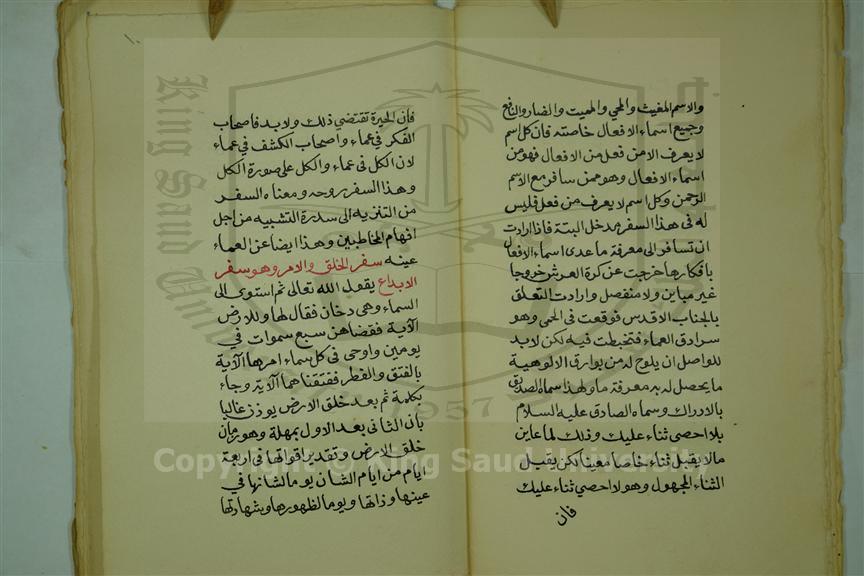 والاسم المغيث والمحي والمميت والضار والنافع
وجميع اسماء الافعال خاصته فان كل اسم
لا يعرف الا من فعل من الافعال فهو من
اسماء الافعال وهو ممن سافر مع الاسم
الرحمن وكل اسم لا يعرف من فعل فليس
له في هذا السفر مدخل البتة فاذا ارادت
ان تسافر الى معرفة ما عدى اسماء الافعال
بافكارها خرجت عن كرة العرش خروجا
غير مباين ولا منفصل وارادت التعلق
بالجناب الاقدس فوقعت في الحمى وهو
سرادق العماء فتخبطت فيه لكن لا بد
للواصل ان يلوح له من بوارق الالوهية
ما يحصل له به معرفة ما ولهذا سماه الصديق
بالادراك وسماه الصادق عليه السلام
بلا احصى ثناء عليك وذلك لما عاين
ما لا يقبل ثناء خاصا معينا لكن يقبل
الثناء المجهول وهو لا احصي ثناء عليك
فان
١٠
فان الحيرة تقتضي ذلك ولا بد فاصحاب
الفكر في عماء واصحاب الكشف في عماء
لان الكل في عماء والكل على صورة الكل
وهذا السفر روحه ومعناه السفر
من التنزيه الى سدرة التشبيه من اجل
افهام المخاطبين وهذا ايضا عن العماء
عينه سفر الخلق والامر وهو سفر
الابداع يقول الله تعالى ثم استوى الى
السماء وهي دخان فقال لها وللارض
الآية فقضاهن سبع سموات في
يومين واوحى في كل سماء امرها الآية
بالفتق والفطر ففتقناهما الآية وجاء
بكلمة ثم بعد خلق الارض يوذن غالبا
بان الثاني بعد الاول بمهلة وهو زمان
خلق الارض وتقدير اقواتها في اربعة
ايام من ايام الشان يوما لشانها في
عينها وذاتها ويوما لظهورها وشهادتها
King Saud University
1957
Copyright © King Saud University